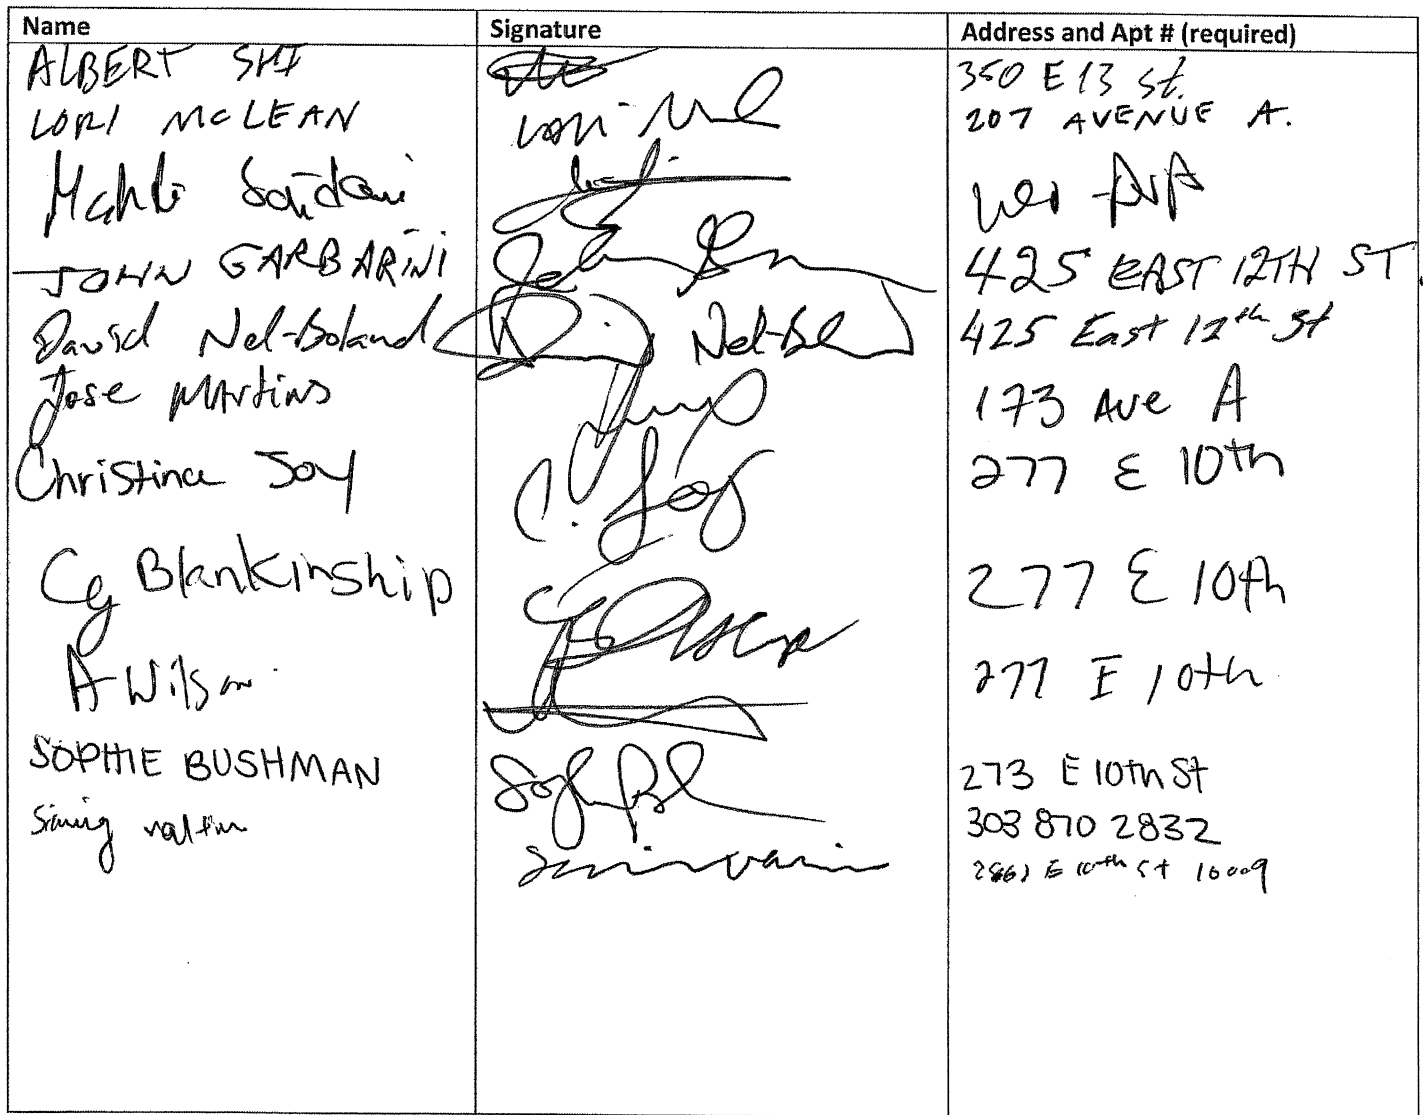 Name Signature Address and Apt # (required)
ALBERT SHI 350 E 13 St.
LORI MCLEAN Lori 207 AVENUE A.
JOHN GARBARINI John 425 EAST 12TH ST.
David Nel-Boland Nel-Bl 425 East 12th St
Jose Martins 173 Ave A
Christina Joy C. Joy 277 E 10th
Cg Blankinship 277 E 10th
A Wilson 277 E 10th
SOPHIE BUSHMAN 273 E 10th St
303 870 2832
E 10th St 10009